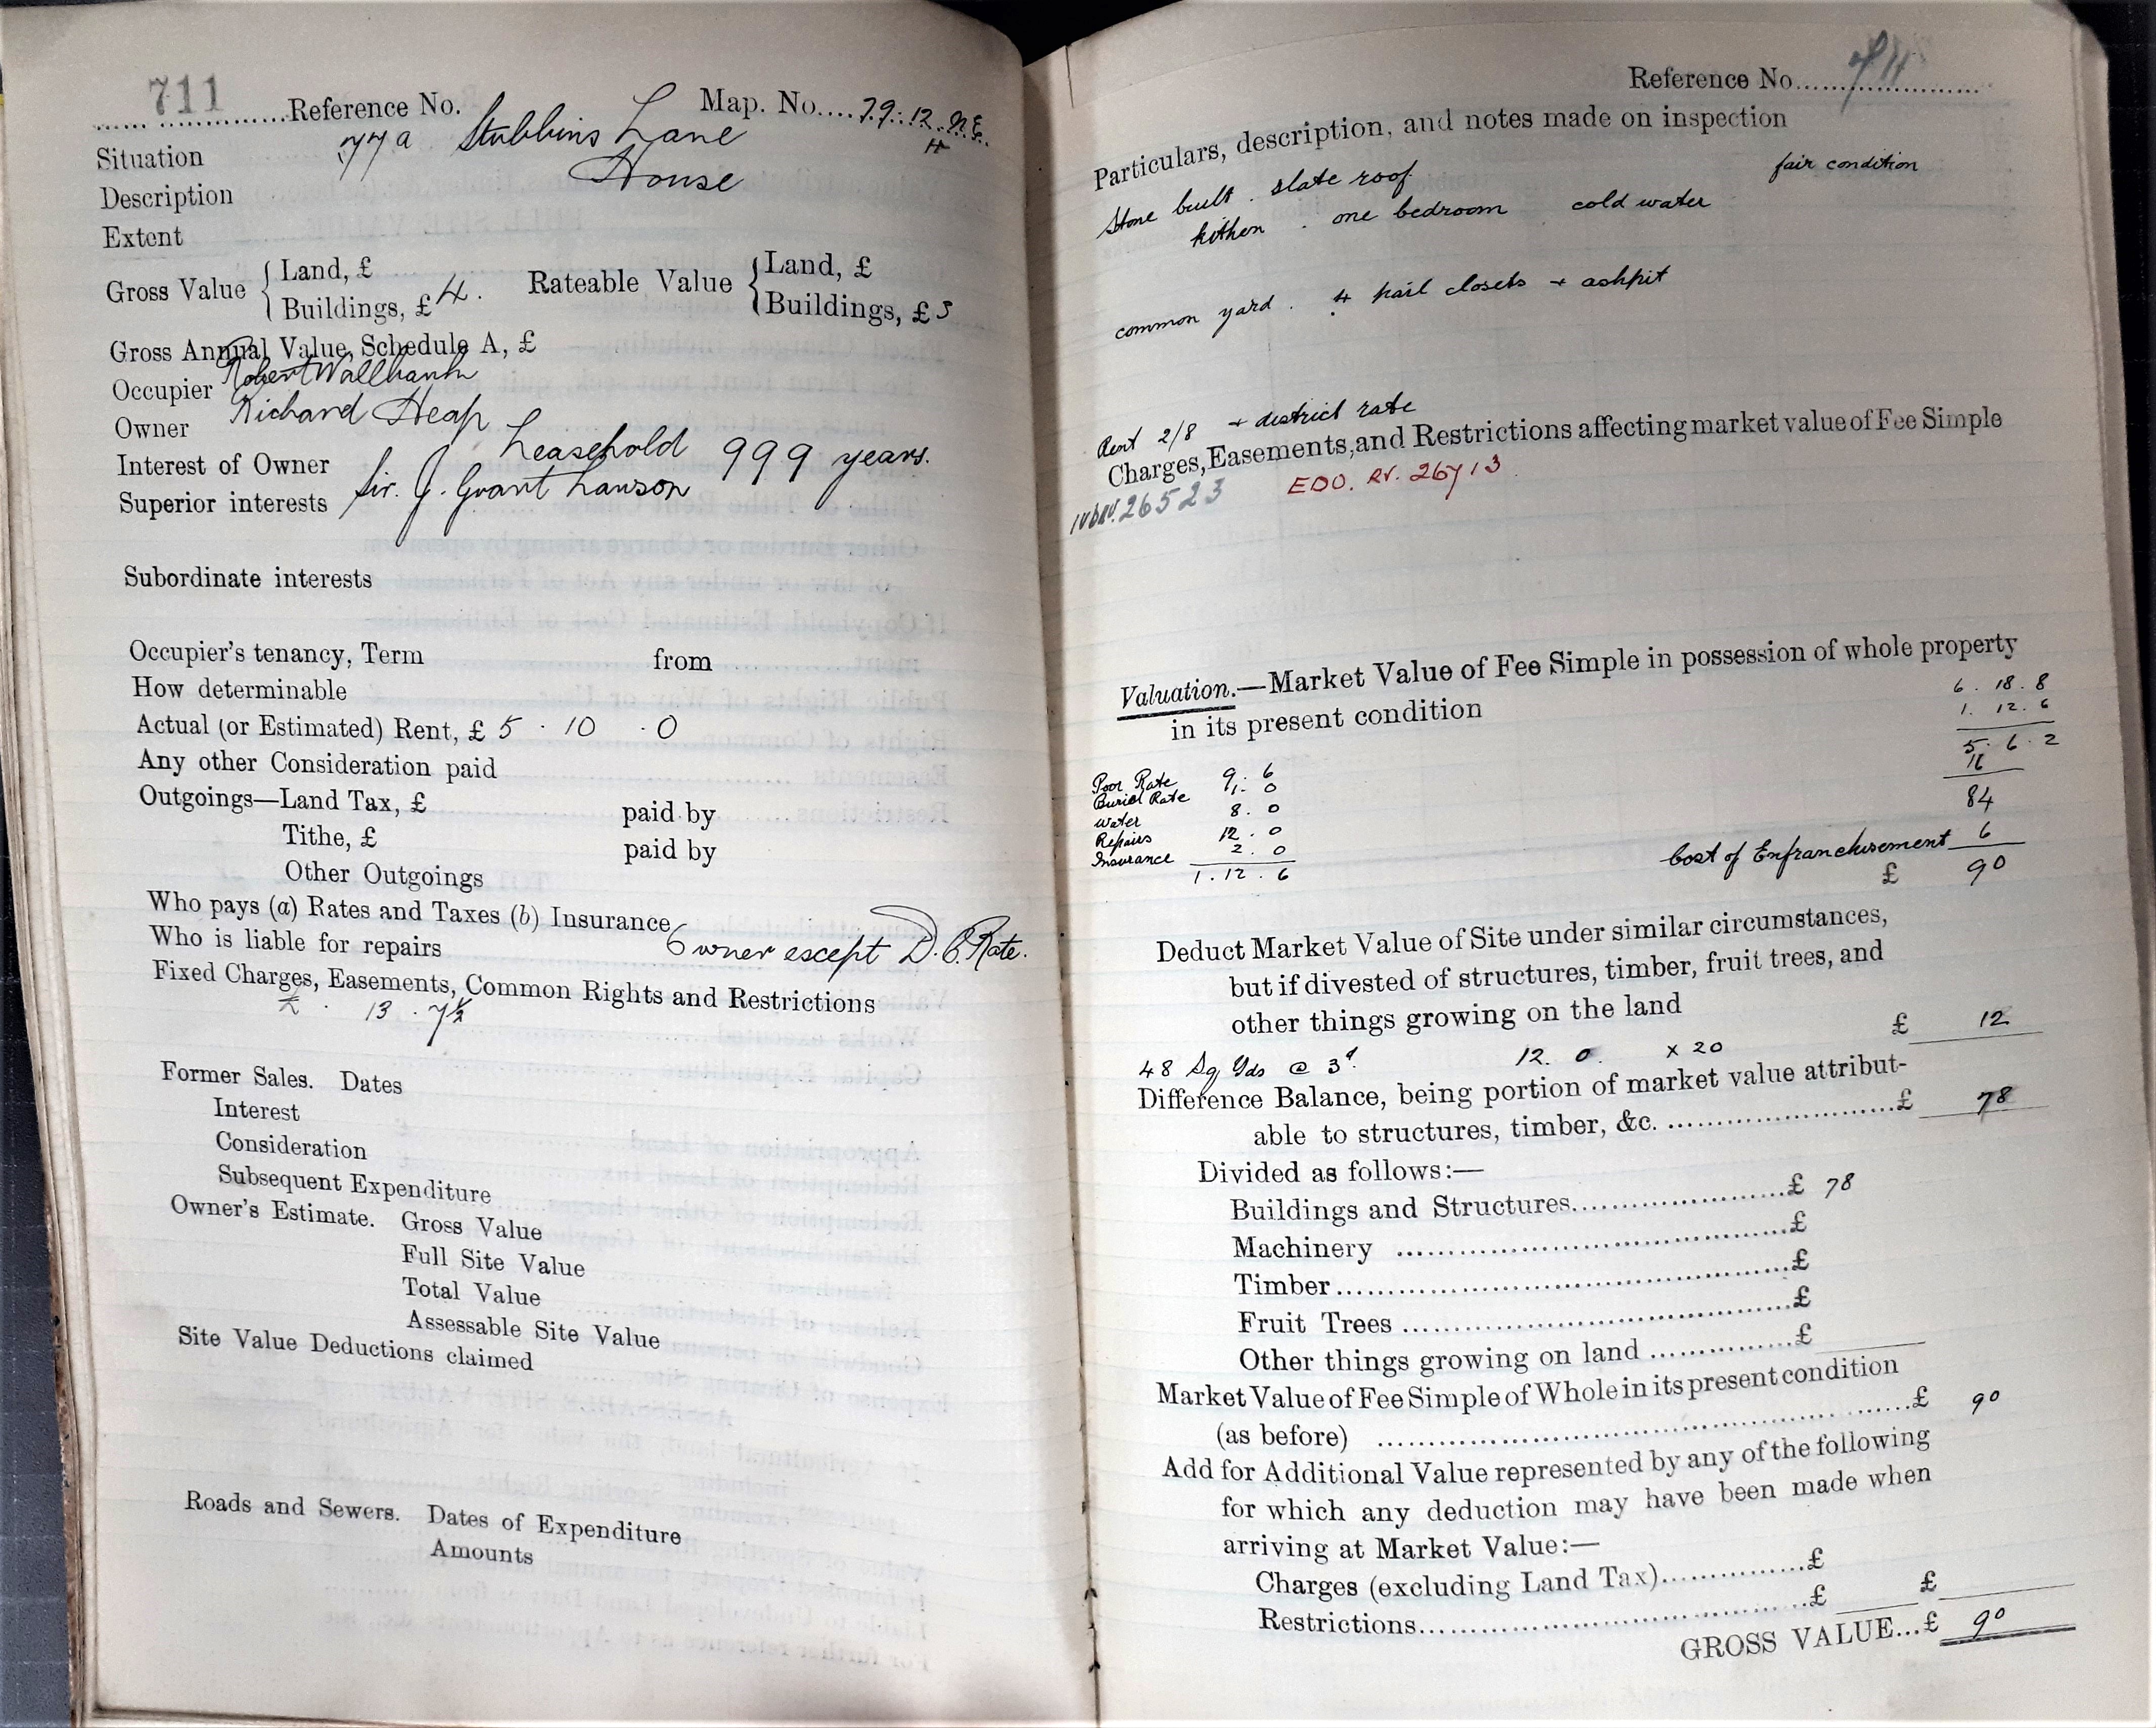 711
Reference No. Map. No. 79.12.N.E.
4
Situation 77a Stubbins Lane
Description House
Extent
Gross Value { Land, £ Rateable Value { Land, £
Buildings, £ 4. Buildings, £ 3
Gross Annual Value, Schedule A, £
Occupier Robert Wallbank
Owner Richard Heap
Interest of Owner Leasehold 999 years.
Superior interests Sir. J. Grant Lawson
Subordinate interests
Occupier's tenancy, Term from
How determinable
Actual (or Estimated) Rent, £ 5 . 10 . 0
Any other Consideration paid
Outgoings—Land Tax, £ paid by
Tithe, £ paid by
Other Outgoings
Who pays (a) Rates and Taxes (b) Insurance
Who is liable for repairs Owner except D.C. Rate.
Fixed Charges, Easements, Common Rights and Restrictions
13 . 7½
Former Sales. Dates
Interest
Consideration
Subsequent Expenditure
Owner's Estimate. Gross Value
Full Site Value
Total Value
Assessable Site Value
Site Value Deductions claimed
Roads and Sewers. Dates of Expenditure
Amounts
Reference No. 711
Particulars, description, and notes made on inspection
Stone built . slate roof fair condition
kithen . one bedroom cold water
common yard . 4 pail closets + ashpit
Rent 2/8 + district rate
Charges, Easements, and Restrictions affecting market value of Fee Simple
26523 EDO. RV. 26713
Valuation.—Market Value of Fee Simple in possession of whole property
in its present condition
6 . 18 . 8
1 . 12 . 6
5 . 6 . 2
16
84
Poor Rate 9 . 6
Burial Rate 1 . 0
Water 8 . 0
Repairs 12 . 0
Insurance 2 . 0
1 . 12 . 6
Cost of Enfranchisement 6
£ 90
Deduct Market Value of Site under similar circumstances,
but if divested of structures, timber, fruit trees, and
other things growing on the land £ 12
48 Sq Yds @ 3d. 12 . 0 . x 20
Difference Balance, being portion of market value attribut-
able to structures, timber, &c. £ 78
Divided as follows:—
Buildings and Structures £ 78
Machinery £
Timber £
Fruit Trees £
Other things growing on land £
Market Value of Fee Simple of Whole in its present condition
(as before) £ 90
Add for Additional Value represented by any of the following
for which any deduction may have been made when
arriving at Market Value:—
Charges (excluding Land Tax) £
Restrictions £ £
GROSS VALUE... £ 90